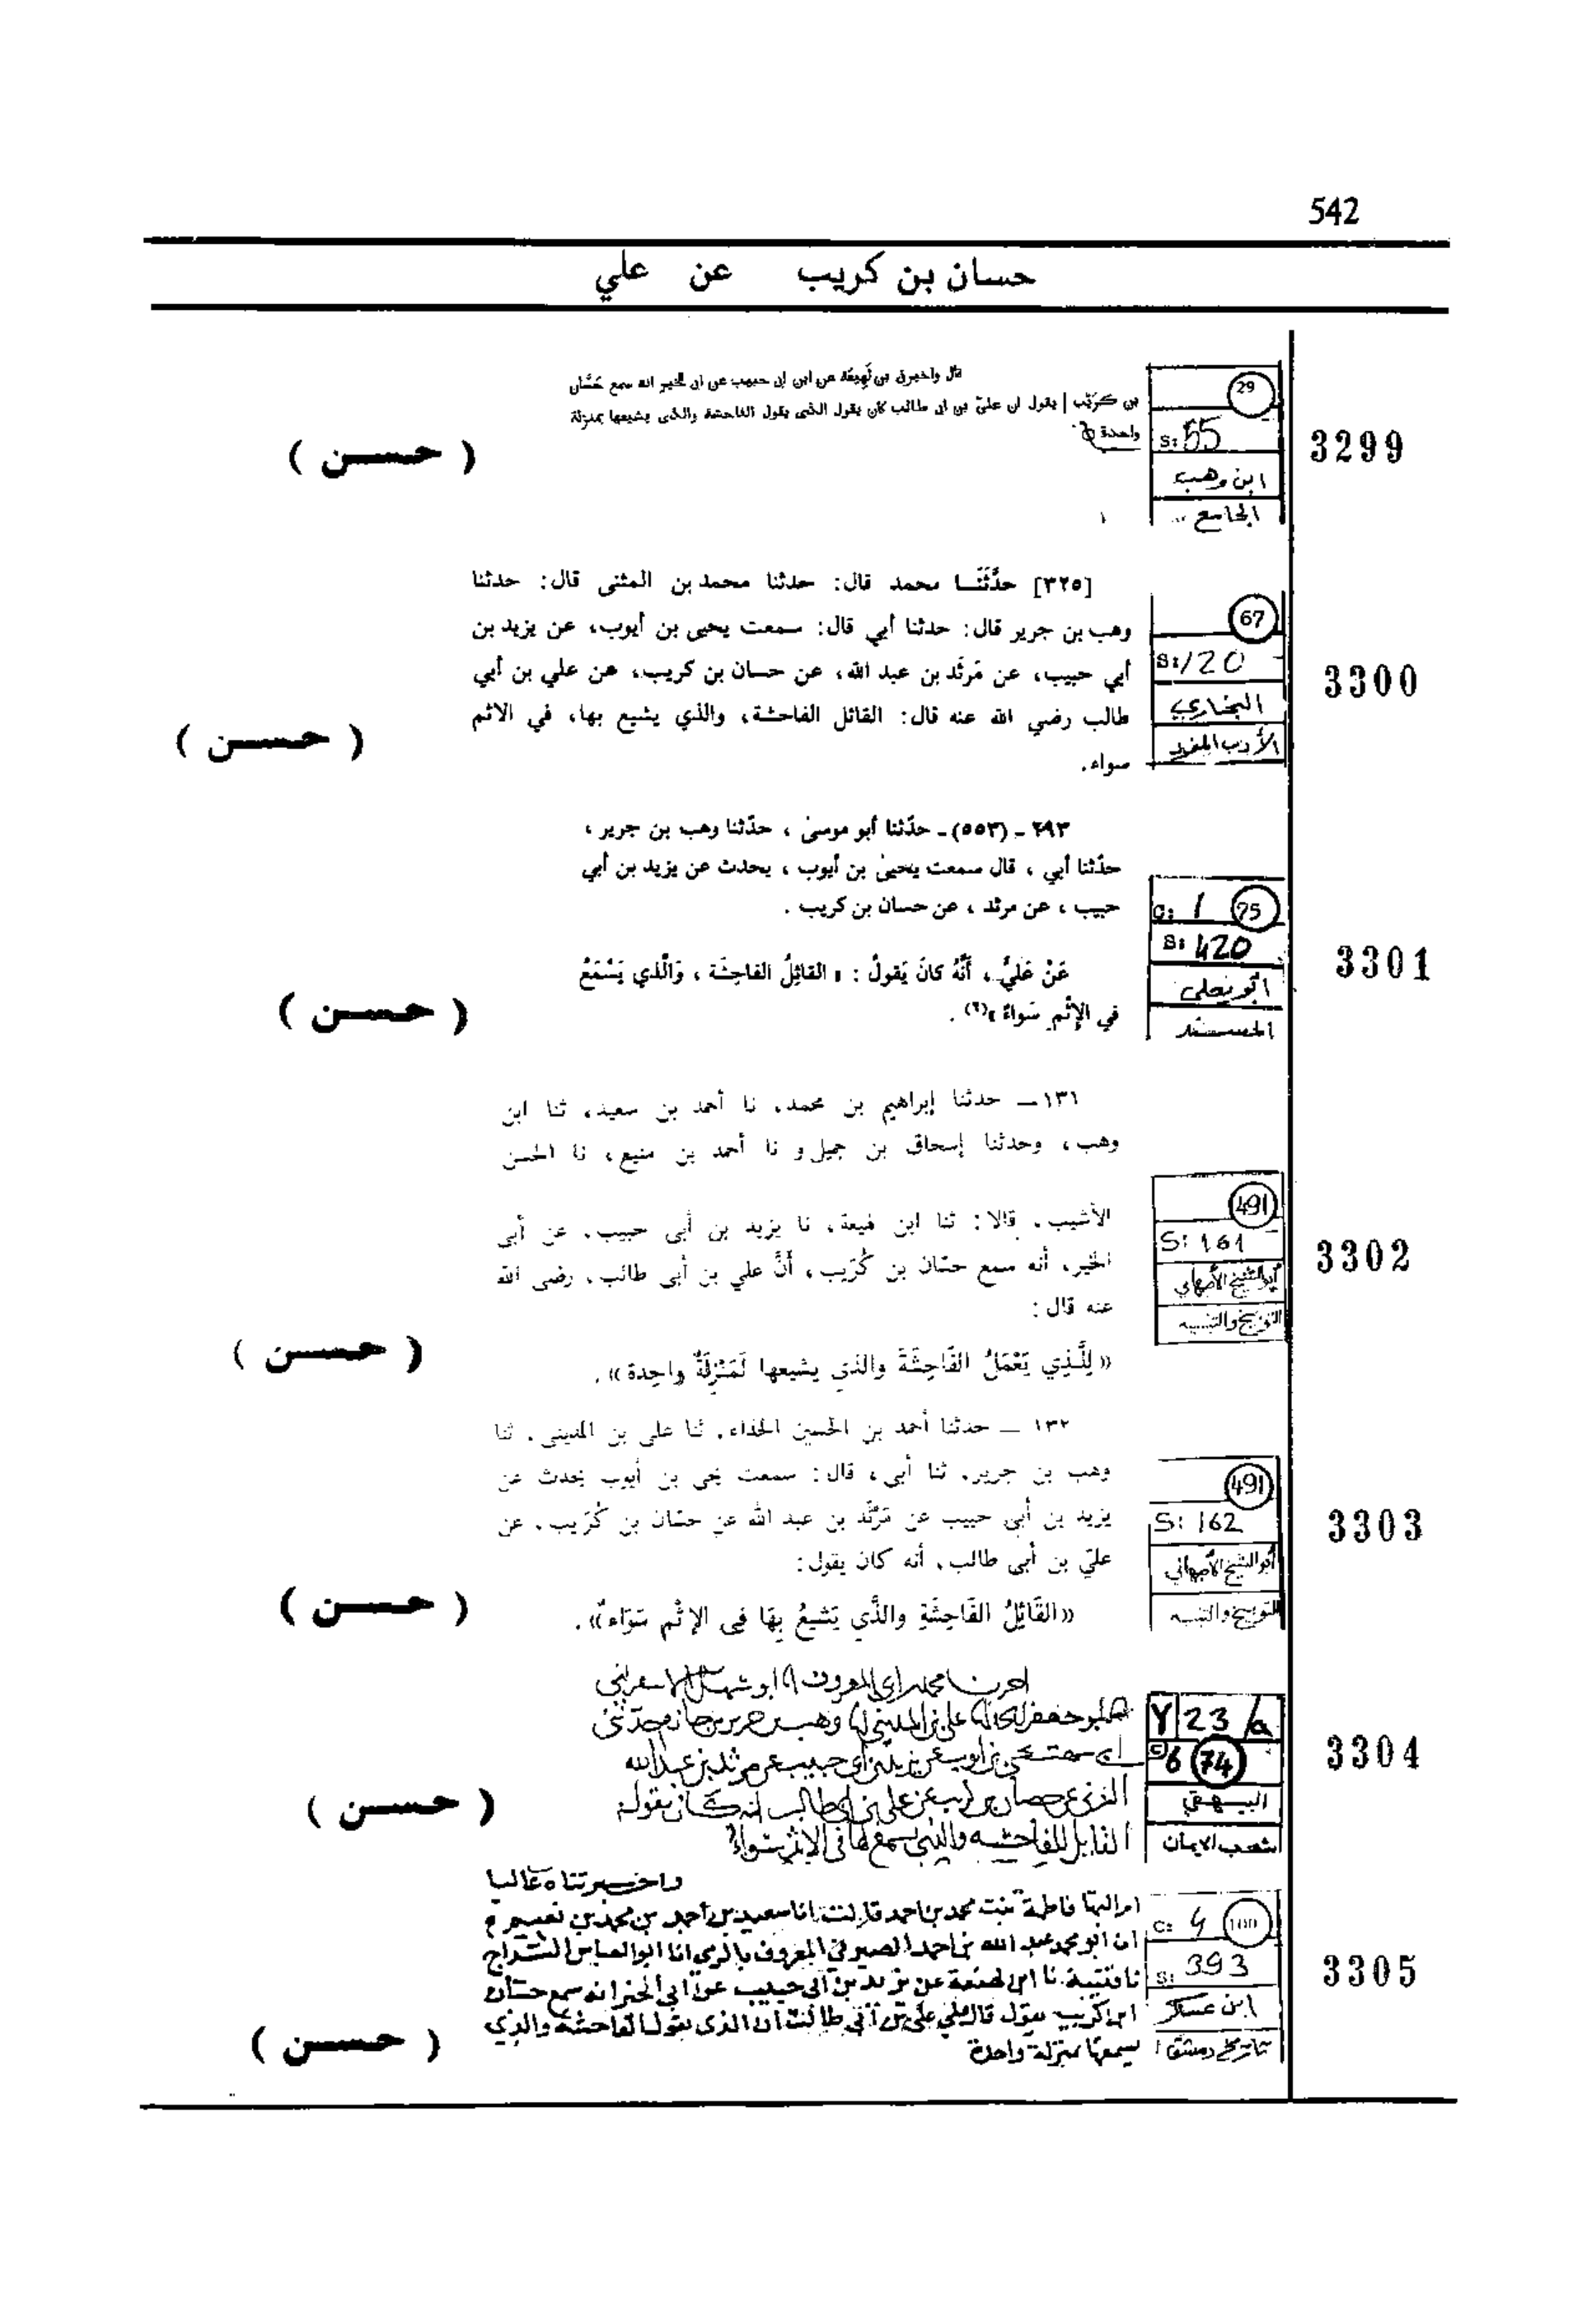 542
حسان بن كريب عن علي
قال واخبرني بن لَهِيعَة عن ابن ابى حبيب عن ابى الخير انه سمع حَسَّان
بن كُرَيْب | يقول ان علىّ بن ابى طالب كان يقول الذى يقول الفاحشة والذى يشيعها بمنزلة
واحدة
29
S: 55
ابن وهب
الجامع
3299
( حسن )
[٣٢٥] حدَّثَنَـا محمد قال: حدثنا محمد بن المثنى قال: حدثنا
وهب بن جرير قال: حدثنا أبي قال: سمعت يحيى بن أيوب، عن يزيد بن
أبي حبيب، عن مَرثَد بن عبد الله، عن حسان بن كريب، عن علي بن أبي
طالب رضي الله عنه قال: القائل الفاحشة، والذي يشيع بها، في الاثم
سواء.
67
S: 120
البخاري
الأدب المفرد
3300
( حسن )
٢٩٣ - (٥٥٣) - حدّثنا أبو موسىٰ ، حدّثنا وهب بن جرير ،
حدّثنا أبي ، قال سمعت يحيىٰ بن أيوب ، يحدث عن يزيد بن أبي
حبيب ، عن مرثد ، عن حسان بن كريب .
عَنْ عَليٍّ ، أَنَّهُ كانَ يَقولُ : « القائِلُ الفاحِشَة ، وَالَّذي يَسْمَعُ
في الإِثْمِ سَواءٌ »(٢) .
C: 1 75
S: 420
أبو يعلى
المسند
3301
( حسن )
١٣١ — حدثنا إبراهيم بن محمد، نا أحمد بن سعيد، ثنا ابن
وهب، وحدثنا إسحاق بن جميل و نا أحمد بن منيع، نا الحسن
الأشيب، قالا: ثنا ابن لهيعة، نا يزيد بن أبى حبيب، عن أبى
الخير، أنه سمع حسّان بن كُرَيب، أنَّ علي بن أبى طالب، رضى الله
عنه قال:
«لِلَّذِي يَعْمَلُ الفَاحِشَةَ والذي يشيعها لَمَنْزِلَةٌ واحِدة».
491
S: 161
أبو الشيخ الأصبهاني
التوبيخ والتنبيه
3302
( حسن )
١٣٢ — حدثنا أحمد بن الحسين الحذاء، ثنا على بن المدينى، ثنا
وهب بن جرير، ثنا أبى، قال: سمعت يحيى بن أيوب يحدث عن
يزيد بن أبى حبيب عن مَرْثَد بن عبد الله عن حسّان بن كُرَيب، عن
عليّ بن أبى طالب، أنه كان يقول:
«القَائِلُ الفَاحِشَةِ والذَّي يَشيعُ بِهَا فِى الإِثْم سَوَاء».
491
S: 162
أبو الشيخ الأصبهاني
التوبيخ والتنبيه
3303
( حسن )
محمد بن المعروف ابو سهل الاسفرايني
علي بن المديني وهب بن جرير بن حازم حدثني
ابي سمعت يحيى بن ايوب عن يزيد بن ابي حبيب عن مرثد بن عبد الله
عن حسان بن كريب عن علي بن ابي طالب انه كان يقول
القايل للفاحشه والذي يسمع لها في الاثم سواء
Y 23/a
C 6 74
البيهقي
شعب الإيمان
3304
( حسن )
واخبرتناه عاليا
ام البها فاطمة بنت محمد بن احمد قالت انا سعيد بن احمد بن محمد بن نعيم
انا ابو محمد عبد الله بن احمد الصيرفي المعروف بالرومي انا ابو العباس السراج
نا قتيبة نا ابن لهيعة عن يزيد بن ابي حبيب عن ابي الخير انه سمع حسان
ابن كريب يقول قال لي علي بن أبي طالب ان الذي يقول الفاحشة والذي
يسمعها بمنزلة واحدة
C: 4 100
S: 393
ابن عساكر
تاريخ دمشق
3305
( حسن )